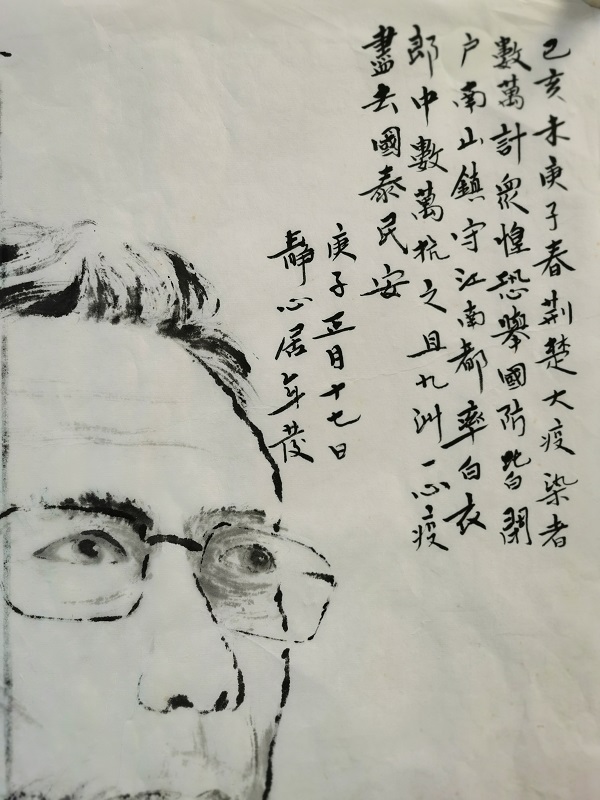 己亥末庚子春荆楚大疫染者
數萬計眾惶恐舉國防皆閉
户南山鎮守江南都率白衣
郎中數萬抗之且九洲一心疫
盡去國泰民安
庚子正月十七日
靜心居年發